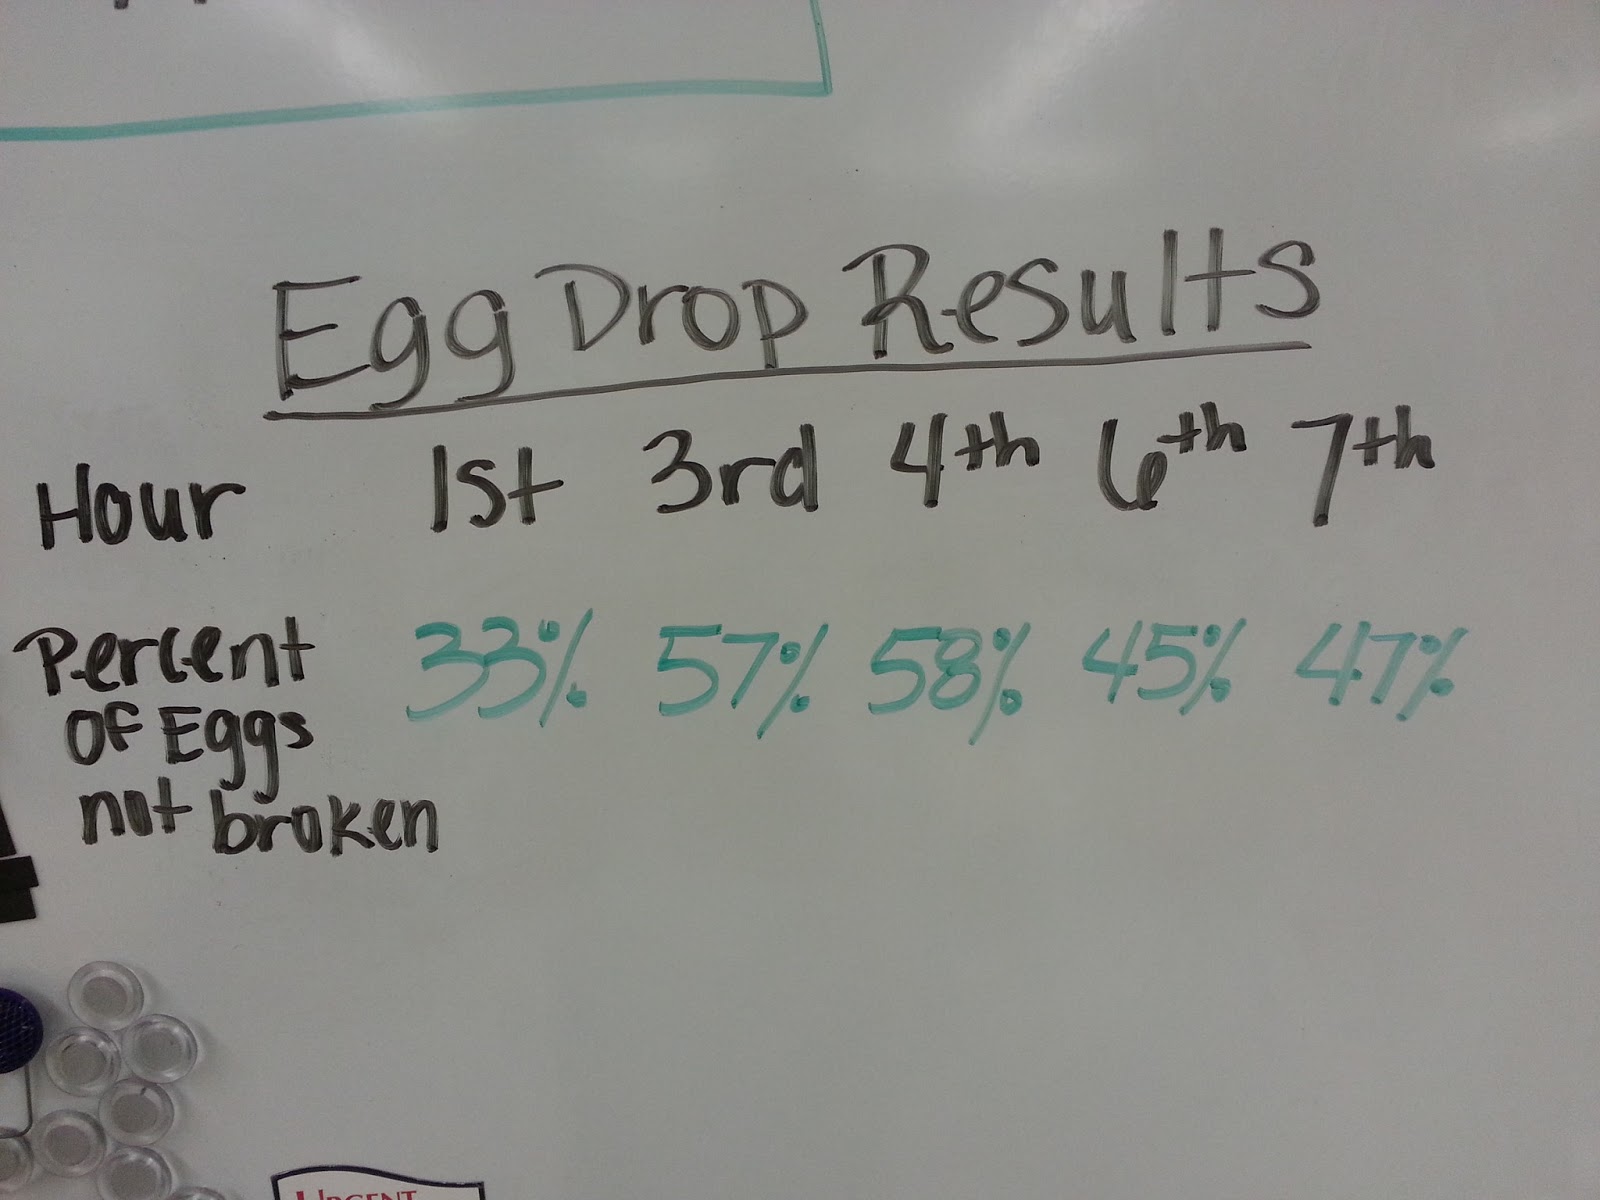 Egg Drop Results
Hour 1st 3rd 4th 6th 7th
Percent 33% 57% 58% 45% 47%
of Eggs
not broken
URGENT